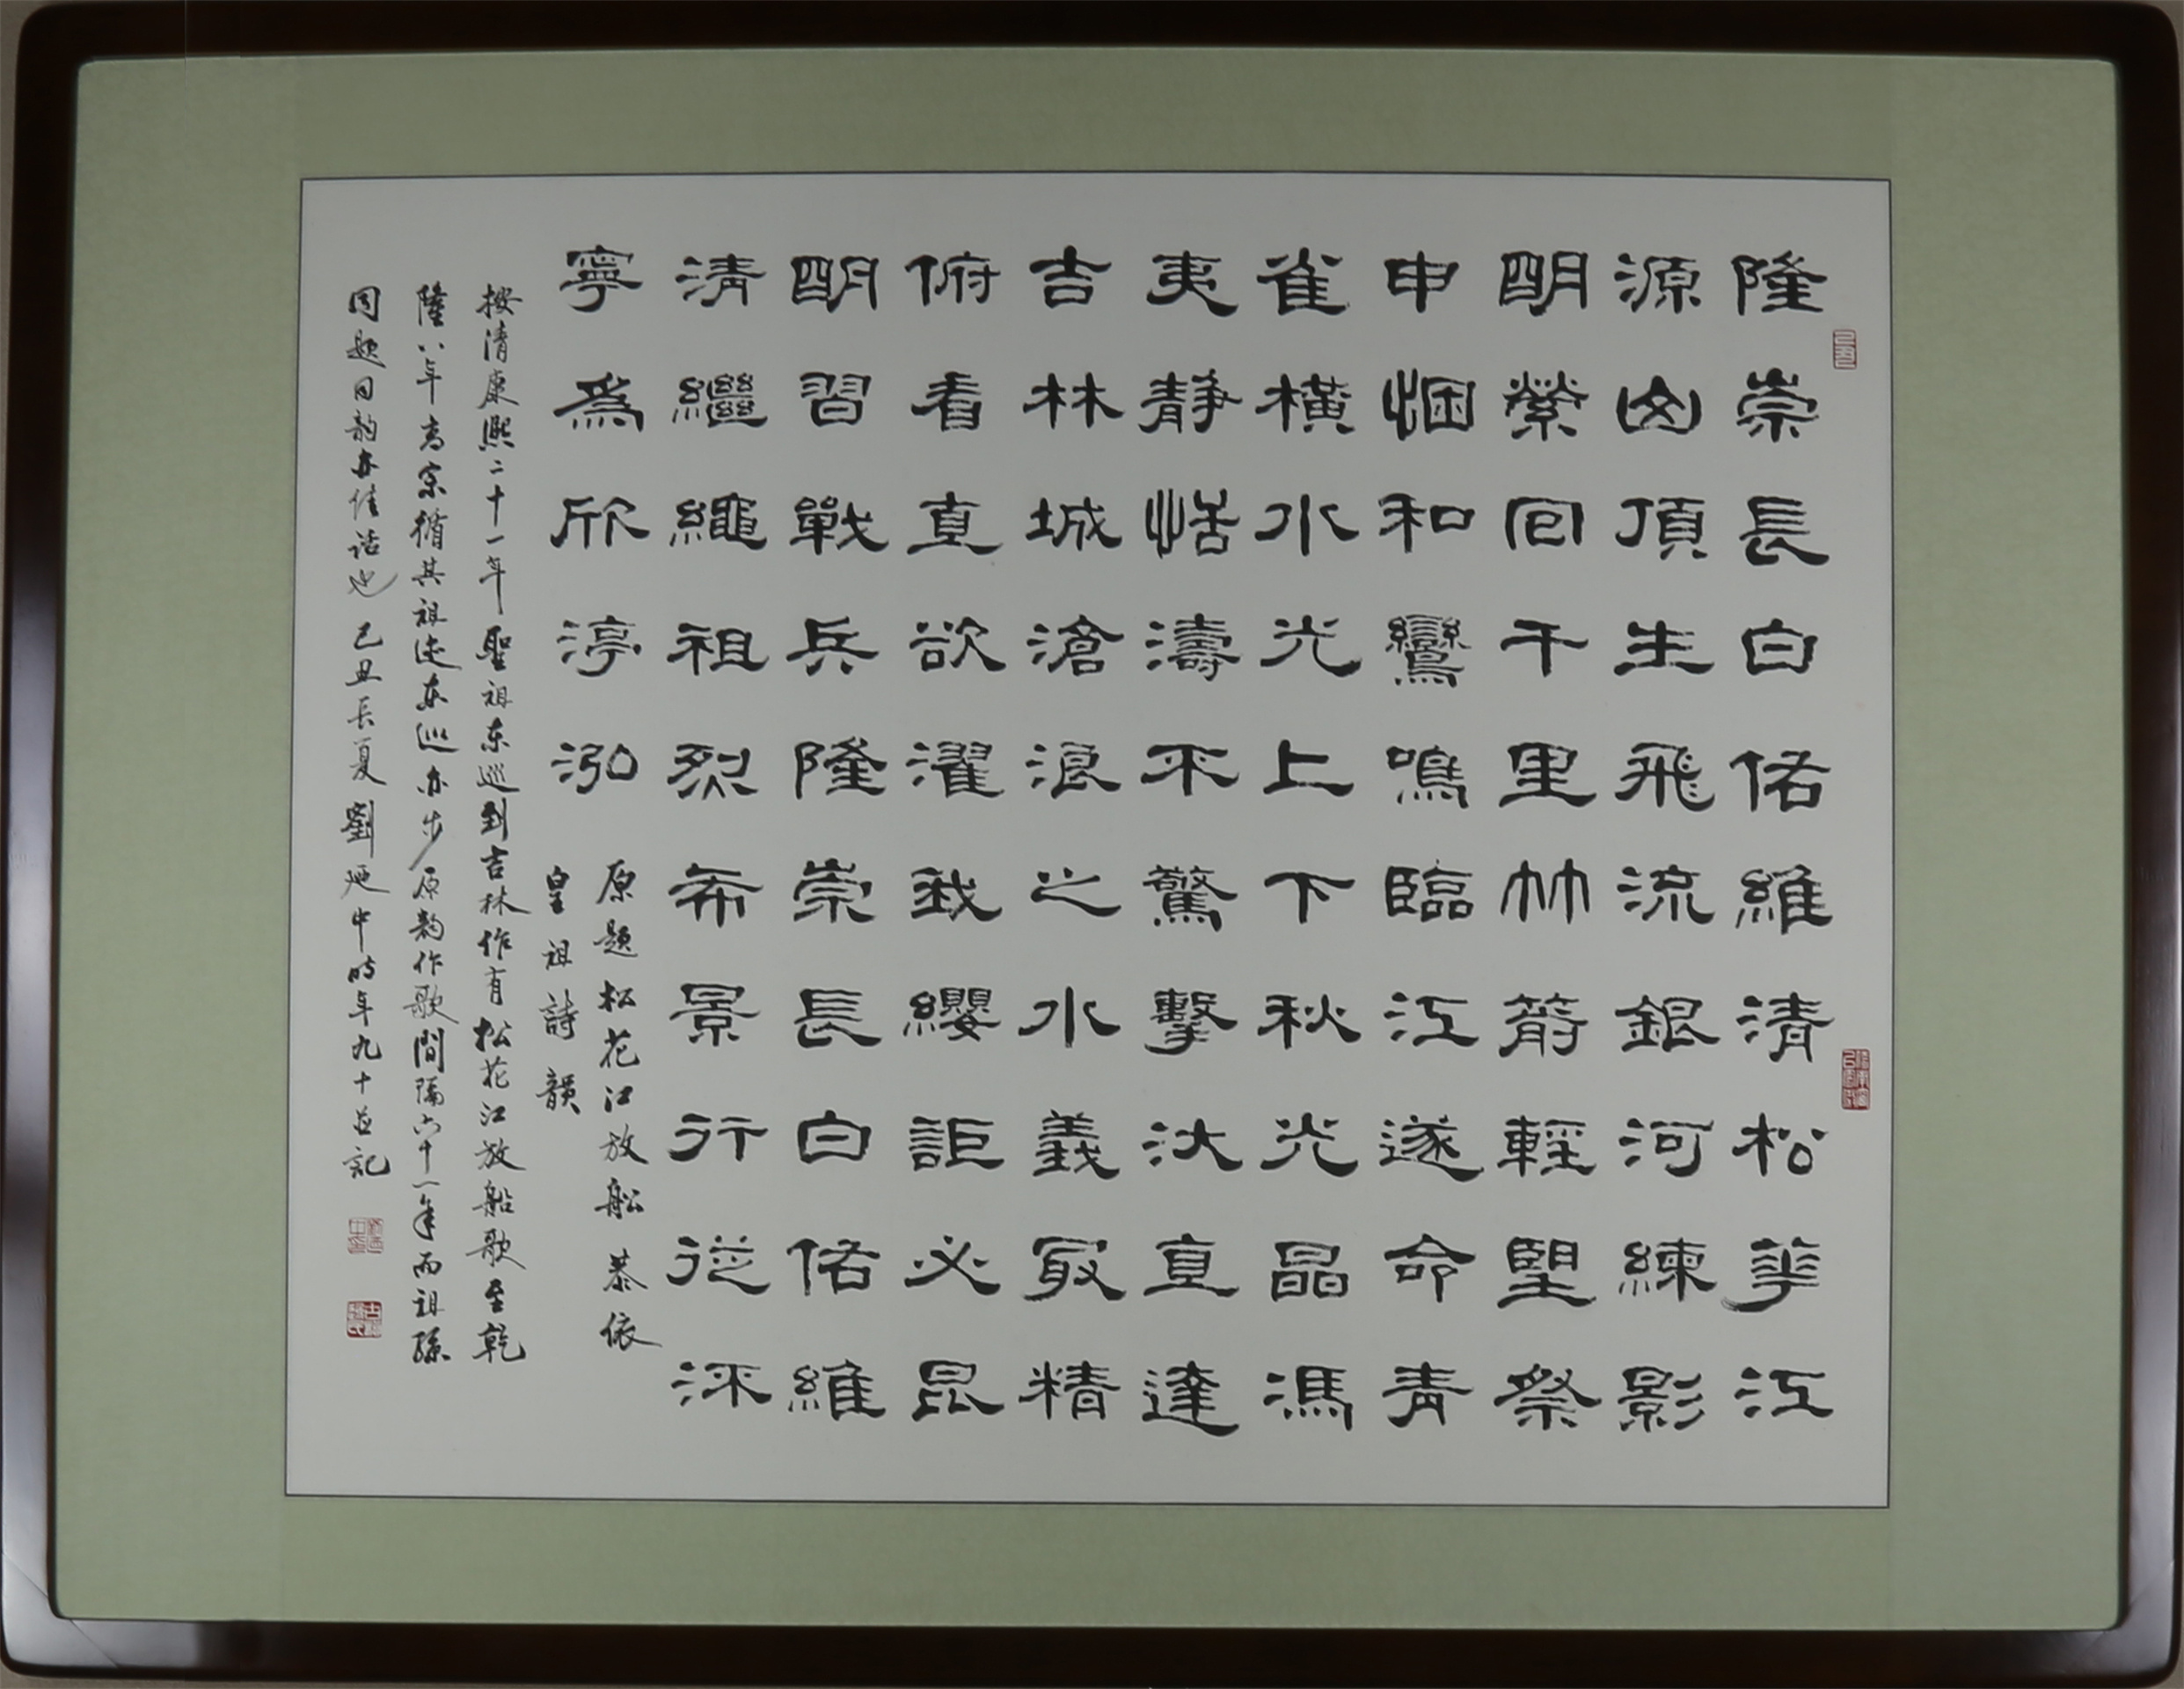 隆崇長白佑維清松華江
源山頂生飛流銀河練影
明縈回千里竹箭輕望祭
申悃和鸞鳴臨江遂命青
雀橫水光上下秋光晶馮
夷靜恬濤不驚擊汰直達
吉林城滄浪之水義最精
俯看直欲濯我纓詎必昆
明習戰兵隆崇長白佑維
清繼繩祖烈希景行從深
寧為欣渟泓
原題松花江放船恭依
皇祖詩韻
按清康熙二十一年聖祖东巡到吉林作有松花江放船歌至乾
隆八年高宗循其祖迹东巡亦步原韵作歌間隔六十一年而祖孫
同題同韵亦佳话也己丑長夏劉廼中時年九十並記